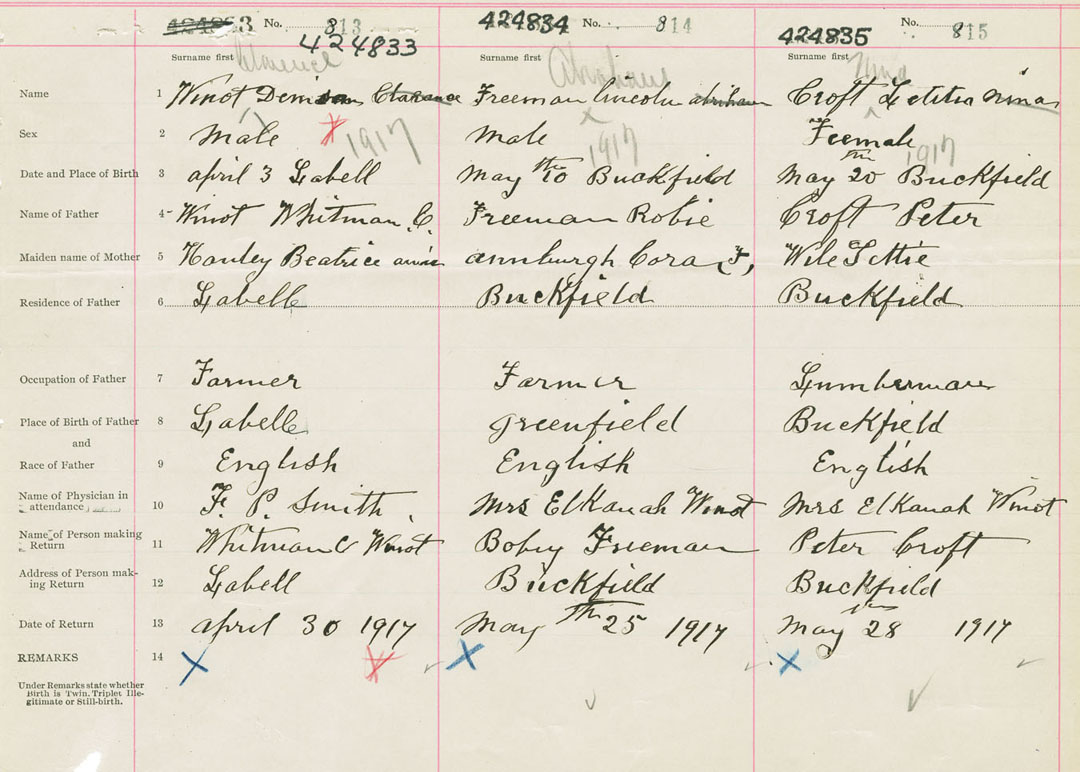 424833 No. 813 424834 No. 814 424835 No. 815
424833
Surname first Clarence Surname first Abraham Surname first Nina
Name 1 Winot Denison Clarance Freeman Lincoln abriham Croft Letitia Nina
Sex 2 Male 1917 Male 1917 Feemale 1917
Date and Place of Birth 3 april 3 Labell May 10th Buckfield May 20th Buckfield
Name of Father 4 Winot Whitman C. Freeman Robie Croft Peter
Maiden name of Mother 5 Hanley Beatrice annie annburgh Cora F, Wile Lettie
Residence of Father 6 Labelle Buckfield Buckfield
Occupation of Father 7 Farmer Farmer Lumberman
Place of Birth of Father 8 Labelle greenfield Buckfield
and
Race of Father 9 English English English
Name of Physician in attendance 10 F. P. Smith Mrs ElKanah Winot Mrs ElKanah Winot
Name of Person making Return 11 Whitman C Winot Freeman Peter Croft
Address of Person making Return 12 Labell Buckfield Buckfield
Date of Return 13 april 30 1917 May 25th 1917 May 28 1917
REMARKS 14 X X X X
Under Remarks state whether
Birth is Twin. Triplet Ille-
gitimate or Still-birth.